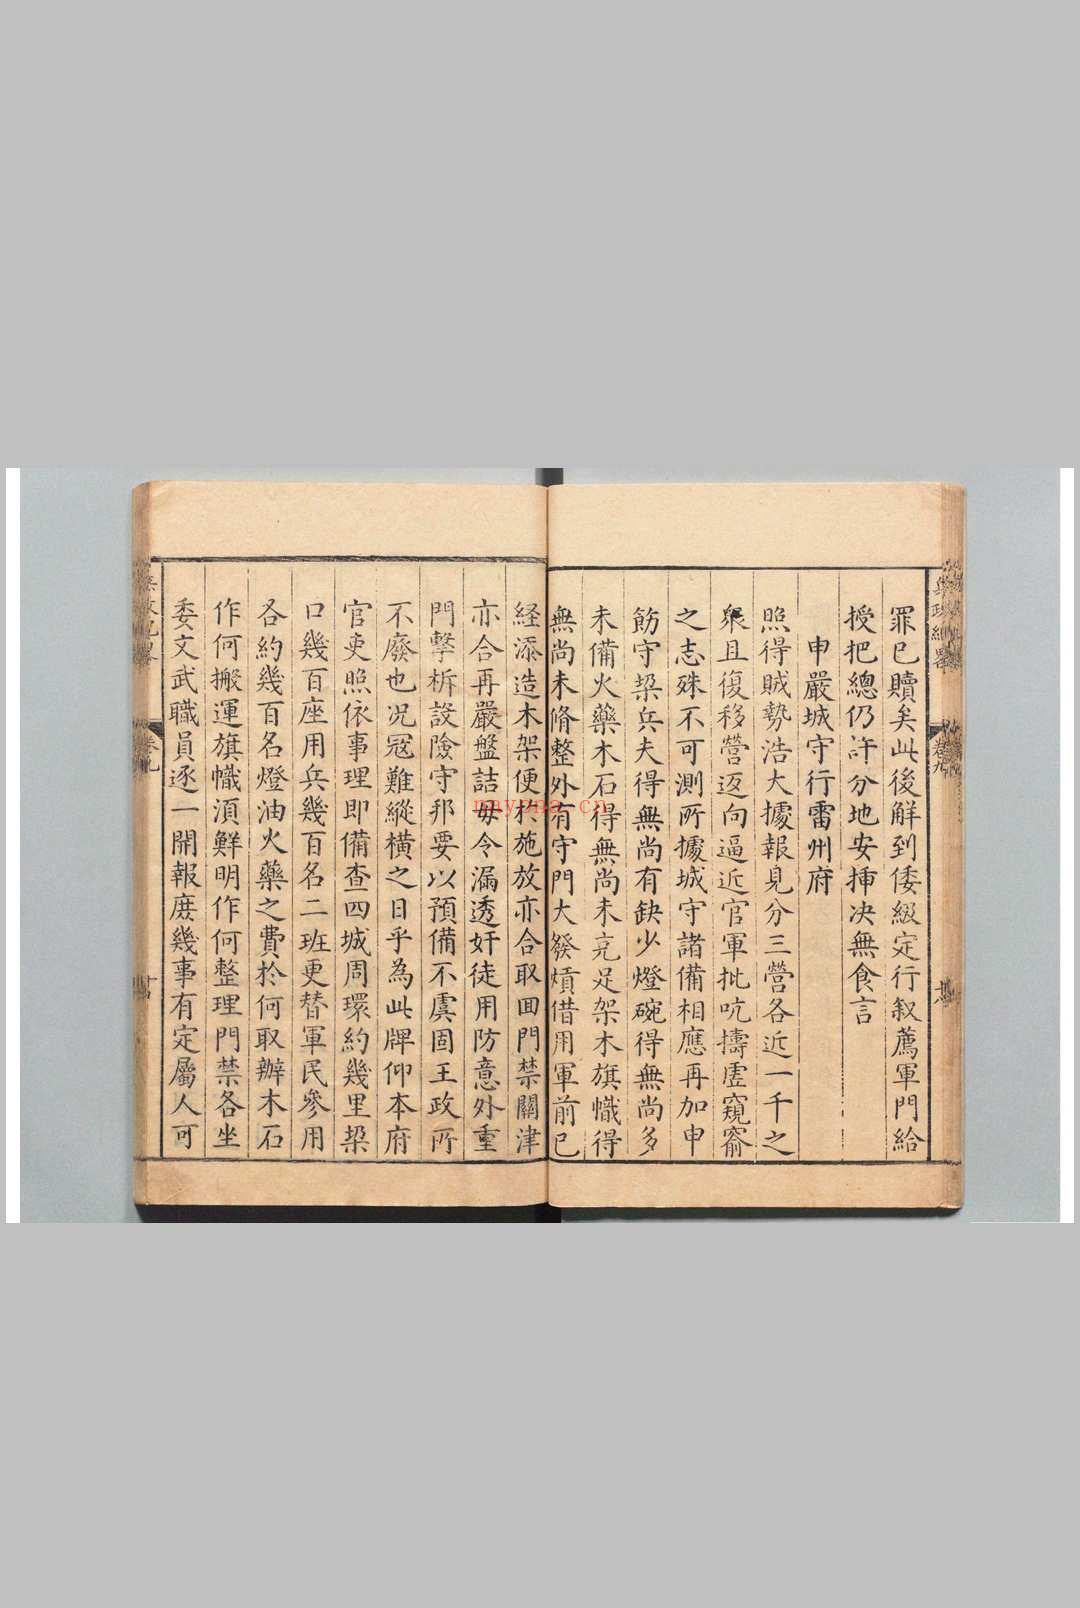 罪已贖矣此後解到倭級定行叙薦軍門給
授把總仍許分地安揷决無食言
申嚴城守行雷州府
照得賊勢浩大據報見分三營各近一千之
衆且復移營返向逼近官軍批吭擣虚窺窬
之志殊不可測所據城守諸備相應再加申
飭守垜兵夫得無尚有缺少燈碗得無尚多
未備火藥木石得無尚未充足架木旗幟得
無尚未脩整外有守門大發熕借用軍前已
経添造木架便扵施放亦合取囬門禁關津
亦合再嚴盤詰毋令漏透奸徒用防意外重
門擊柝設險守邦要以預備不虞固王政所
不廢也况寇難縱横之日乎為此牌仰本府
官吏照依事理即備查四城周環約幾里垜
口幾百座用兵幾百名二班更替軍民參用
各約幾百名燈油火藥之費扵何取辦木石
作何搬運旗幟湏鮮明作何整理門禁各坐
委文武職員逐一開報庻幾事有定屬人可
卷九
nayona.cn